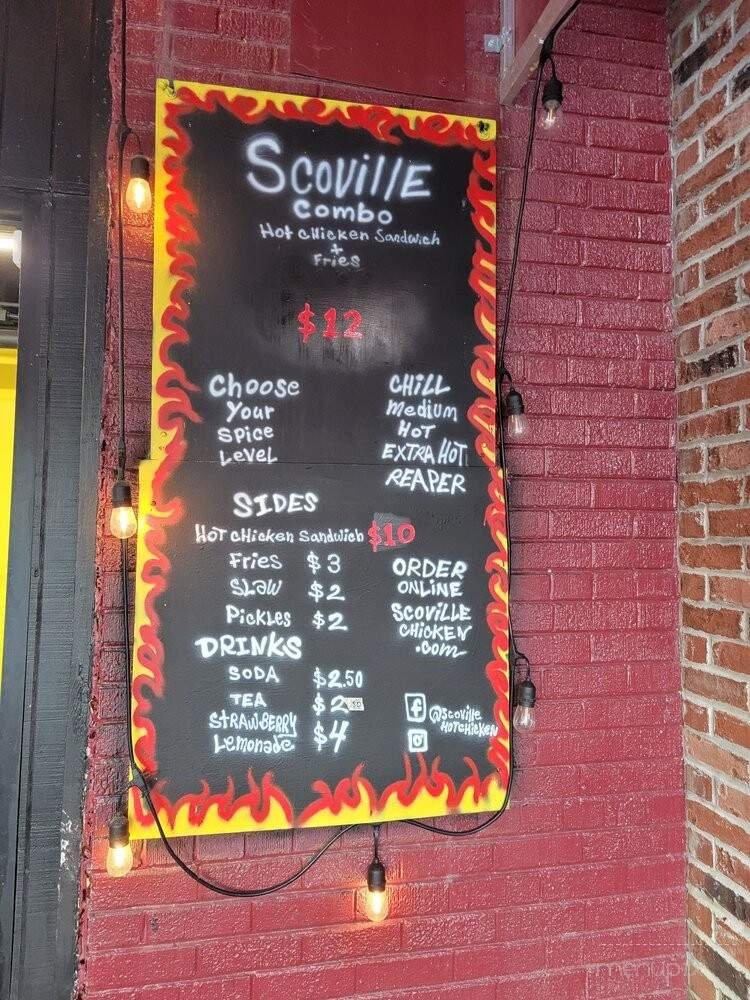 Scoville
Combo
Hot Chicken Sandwich
+
Fries
$12
Choose
Your
Spice
Level
CHILL
Medium
HOT
EXTRA HOT
REAPER
SIDES
Hot Chicken Sandwich $10
Fries $3
SLAW $2
Pickles $2
DRINKS
SODA $2.50
TEA $2.50
STRAWBERRY
Lemonade $4
ORDER
ONLINE
SCOVILLE
CHICKEN
.com
@scoville
HOTCHICKEN